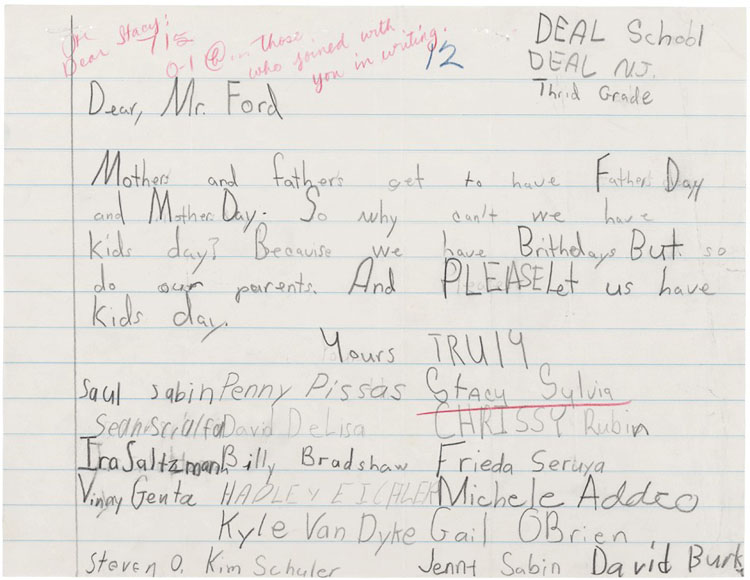 Dear Stacy:
715
0-1 @... those
who joined with
you in writing.
12
DEAL School
DEAL NJ.
Thrid Grade
Dear, Mr. Ford
Mothers and fathers get to have Fathers Day
and Mother Day. So why can't we have
kids day? Because we have Brithedays But. so
do our parents. And PLEASE Let us have
kids day.
Yours TRUly
Saul Sabin Penny Pissas Stacy Sylvia
Sean Scialfa David DeLisa CHRISSY Rubin
Ira Saltzman Billy Bradshaw Frieda Seruya
Vinny Genta HADLEY EICHLER Michele Addeo
Kyle Van Dyke Gail OBrien
Steven O. Kim Schuler Jenny Sabin David Burk